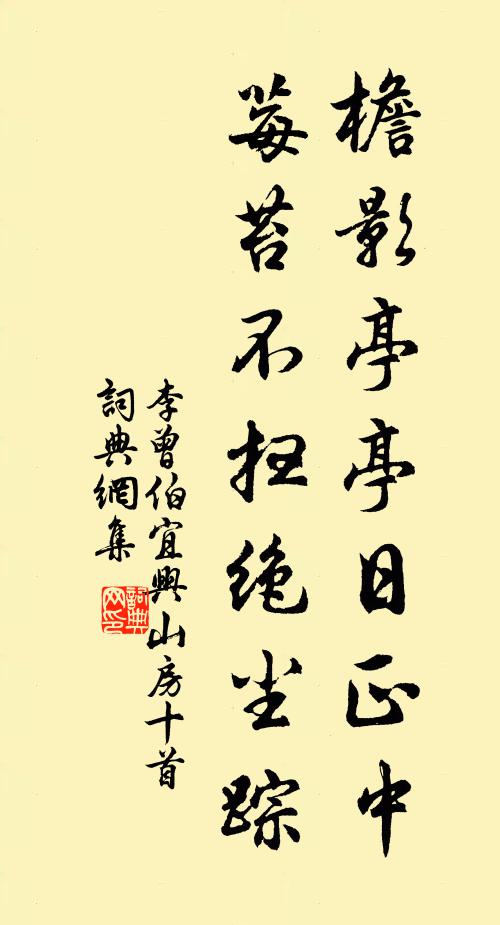 檐影亭亭日正中
莓苔不扫绝尘踪
李曾伯宜興山房十首
詞典網集
詞典网印